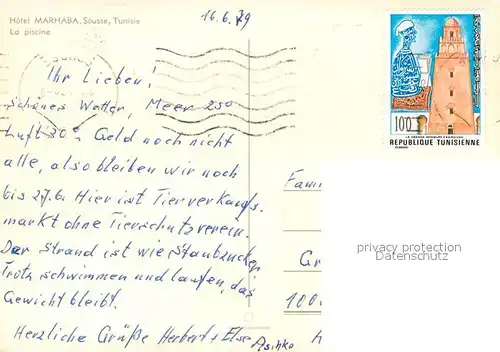 Hôtel MARHABA, Sousse, Tunisie
La piscine
16.6.79
Ihr Lieben!
Schönes Wetter, Meer 23°
Luft 30° Geld noch nicht
alle, also bleiben wir noch
bis 27.6. Hier ist Tierverkaufs-
markt ohne Tierschutzverein.
Der Strand ist wie Staubzucker
Trotz schwimmen und laufen, das
Gewicht bleibt.
Herzliche Grüße Herbert + Else
100
REPUBLIQUE TUNISIENNE
Fami
Gr
100
privacy protection
Datenschutz